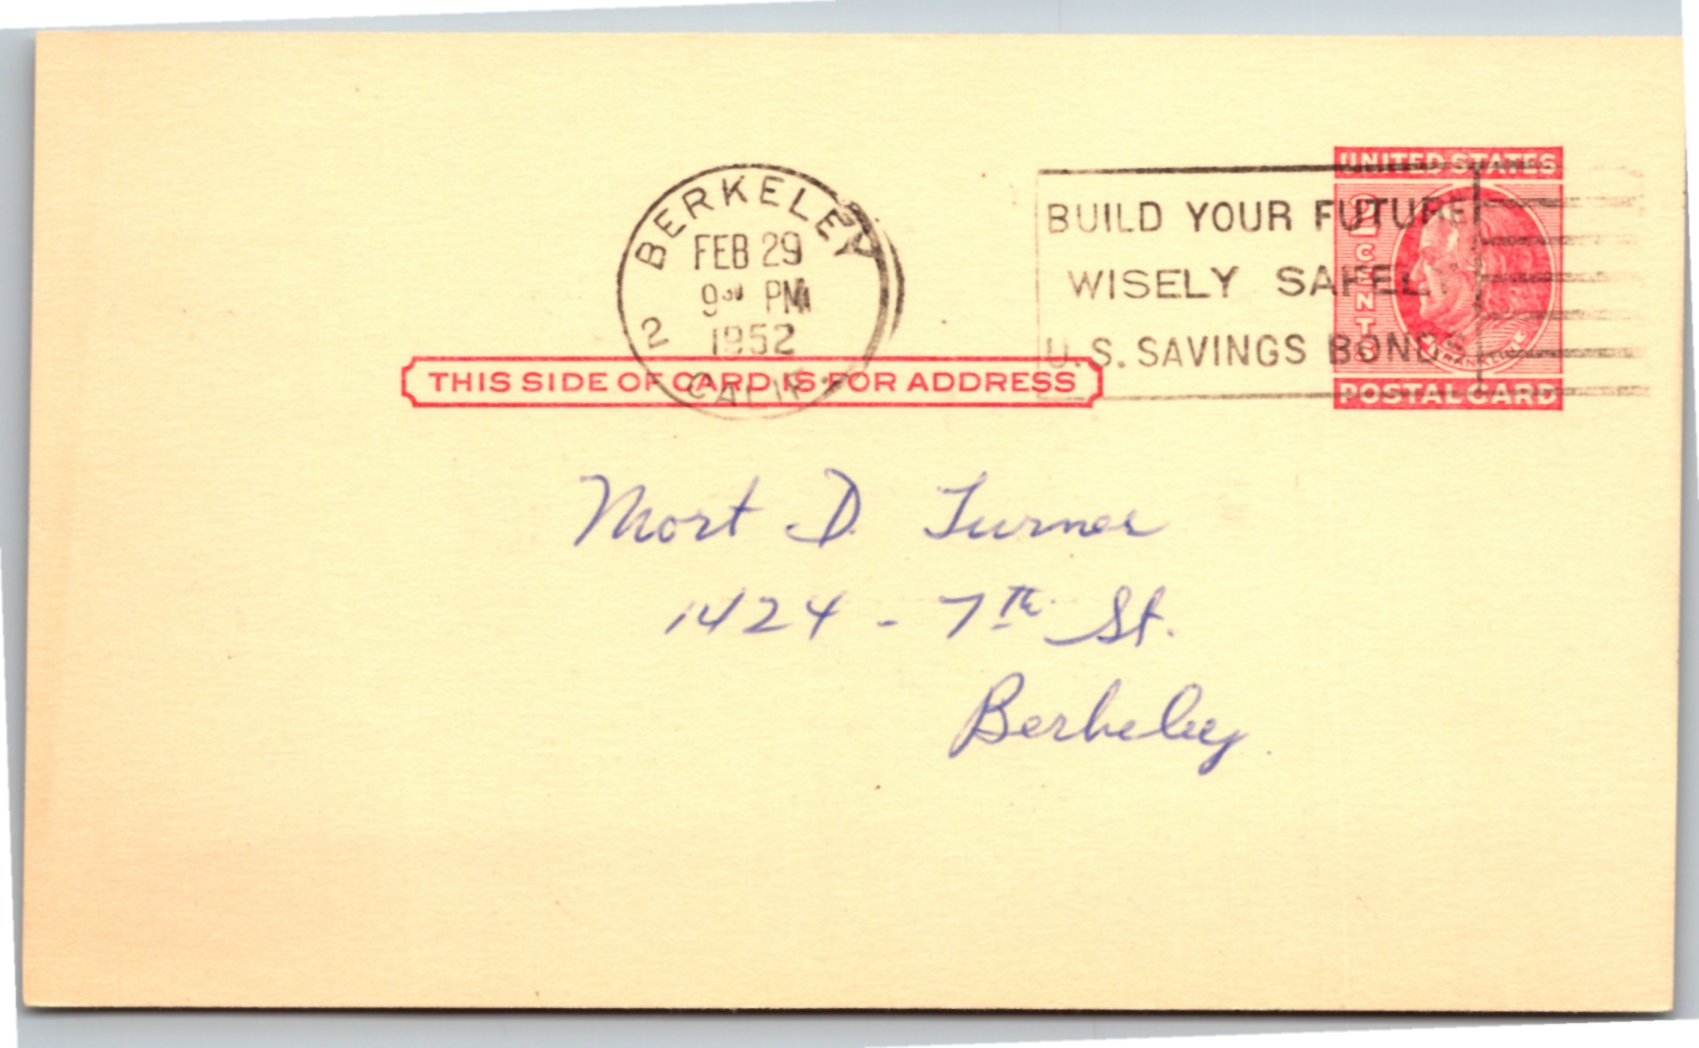 BERKELEY
FEB 29
9 30 PM
1952
2
CALIF.
BUILD YOUR FUTURE
WISELY SAFELY
U.S. SAVINGS BONDS
UNITED STATES
2 CENTS
FRANKLIN
POSTAL CARD
THIS SIDE OF CARD IS FOR ADDRESS
Mort D. Turner
1424 - 7th St.
Berkeley.